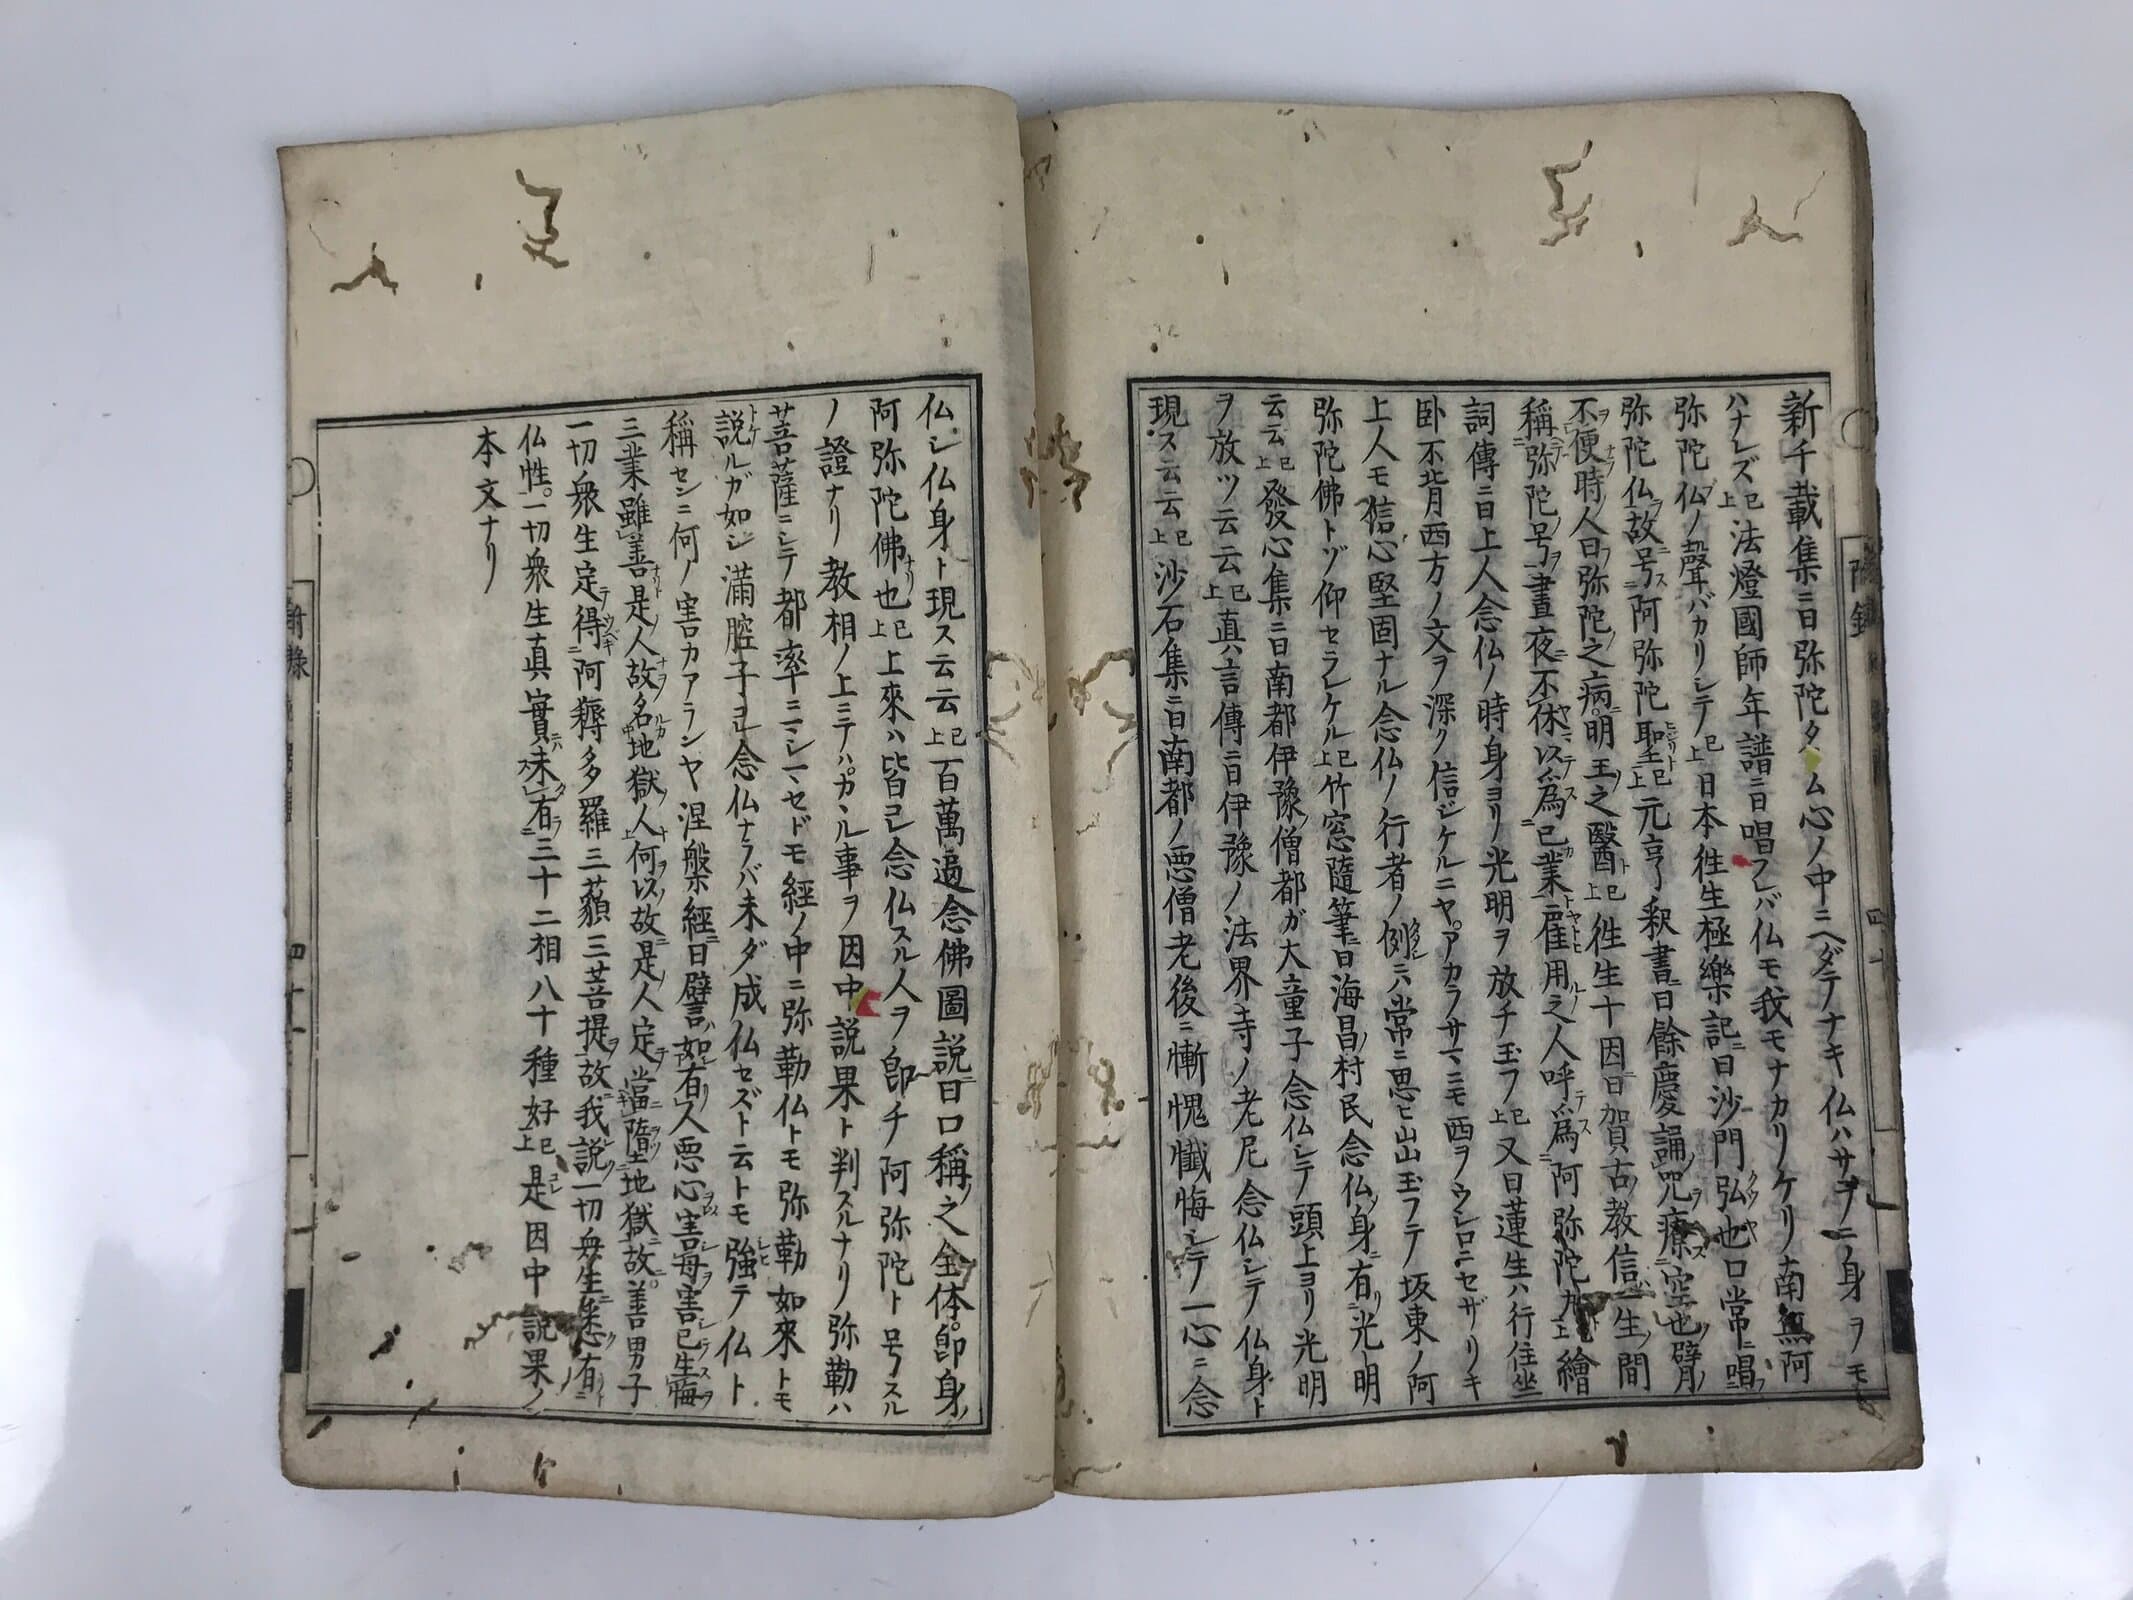 新千載集ニ曰弥陀タム心ノ中ニヘダテナキ仏ハサラニノ身ヲモ
ハナレズ已上法燈國師年譜ニ曰唱フレバ仏モ我モナカリケリ南無阿
弥陀仏ノ聲バカリシテ已上日本徃生極樂記ニ曰沙門弘也口常ニ唱フ
弥陀仏ヲ故ニ号ス阿弥陀聖ト已上元亨釈書ニ曰餘慶誦シ咒ヲ療ス空也臂ノ
不便ヲ時ノ人曰フ弥陀之病ニ明王之醫ト已上徃生十因ニ曰賀古ノ教信一生ノ間
稱ヘテ弥陀ノ号ヲ晝夜ニ不休マ以テ爲ス已カ業ト雇用之人呼テ爲ス阿弥陀丸ト已上繪
詞傳ニ曰上人念仏ノ時身ヨリ光明ヲ放チ玉フ已上又曰蓮生ハ行住坐
卧不背西方ノ文ヲ深ク信ジケルニヤアカラサマニモ西ヲウシロニセザリキ
上人モ信心堅固ナル念仏ノ行者ノ例ニハ常ニ思ヒ出玉フテ坂東ノ阿
弥陀佛トゾ仰セラレケル已上竹窓隨筆ニ曰海昌ノ村民念仏身ニ有リ光明
云云已上發心集ニ曰南都伊豫僧都ガ大童子念仏シテ頭上ヨリ光明
ヲ放ツ云云已上真言傳ニ曰伊豫ノ法界寺ノ老尼念仏シテ仏身ト
現ス云云已上沙石集ニ曰南都ノ悪僧老後ニ慚愧懺悔シテ一心ニ念
附錄
仏シ仏身ト現ス云云已上百萬遍念佛圖說ニ曰口稱之全体即身ノ
阿弥陀佛也已上上來ハ皆コレ念仏スル人ヲ即チ阿弥陀ト号スル
ノ證ナリ教相ノ上ニテハカヽル事ヲ因中說果ト判スルナリ弥勒ハ
菩薩ニシテ都率ニマシマセドモ經ノ中ニ弥勒仏トモ弥勒如來トモ
說ルガ如シ滿腔子コレ念仏ナラバ未ダ成仏セズト云トモ強テ仏ト
稱センニ何ノ害カアランヤ涅槃經ニ曰譬ハ如シ有リ人悪心害母ヲ害シ已テ生悔ヲ
三業雖善ナリト是ノ人故ヲ名地獄ノ人ト何以ノ故ニ是ノ人定テ當ニ墮地獄ニ故ニ善男子
一切衆生定テ得ニ阿耨多羅三藐三菩提ヲ故ニ我說一切衆生ニ悉ク有ニ
仏性一切衆生真實ニハ未ダ有ラ三十二相八十種好已上是コレ因中說果ノ
本文ナリ
附錄
四十一